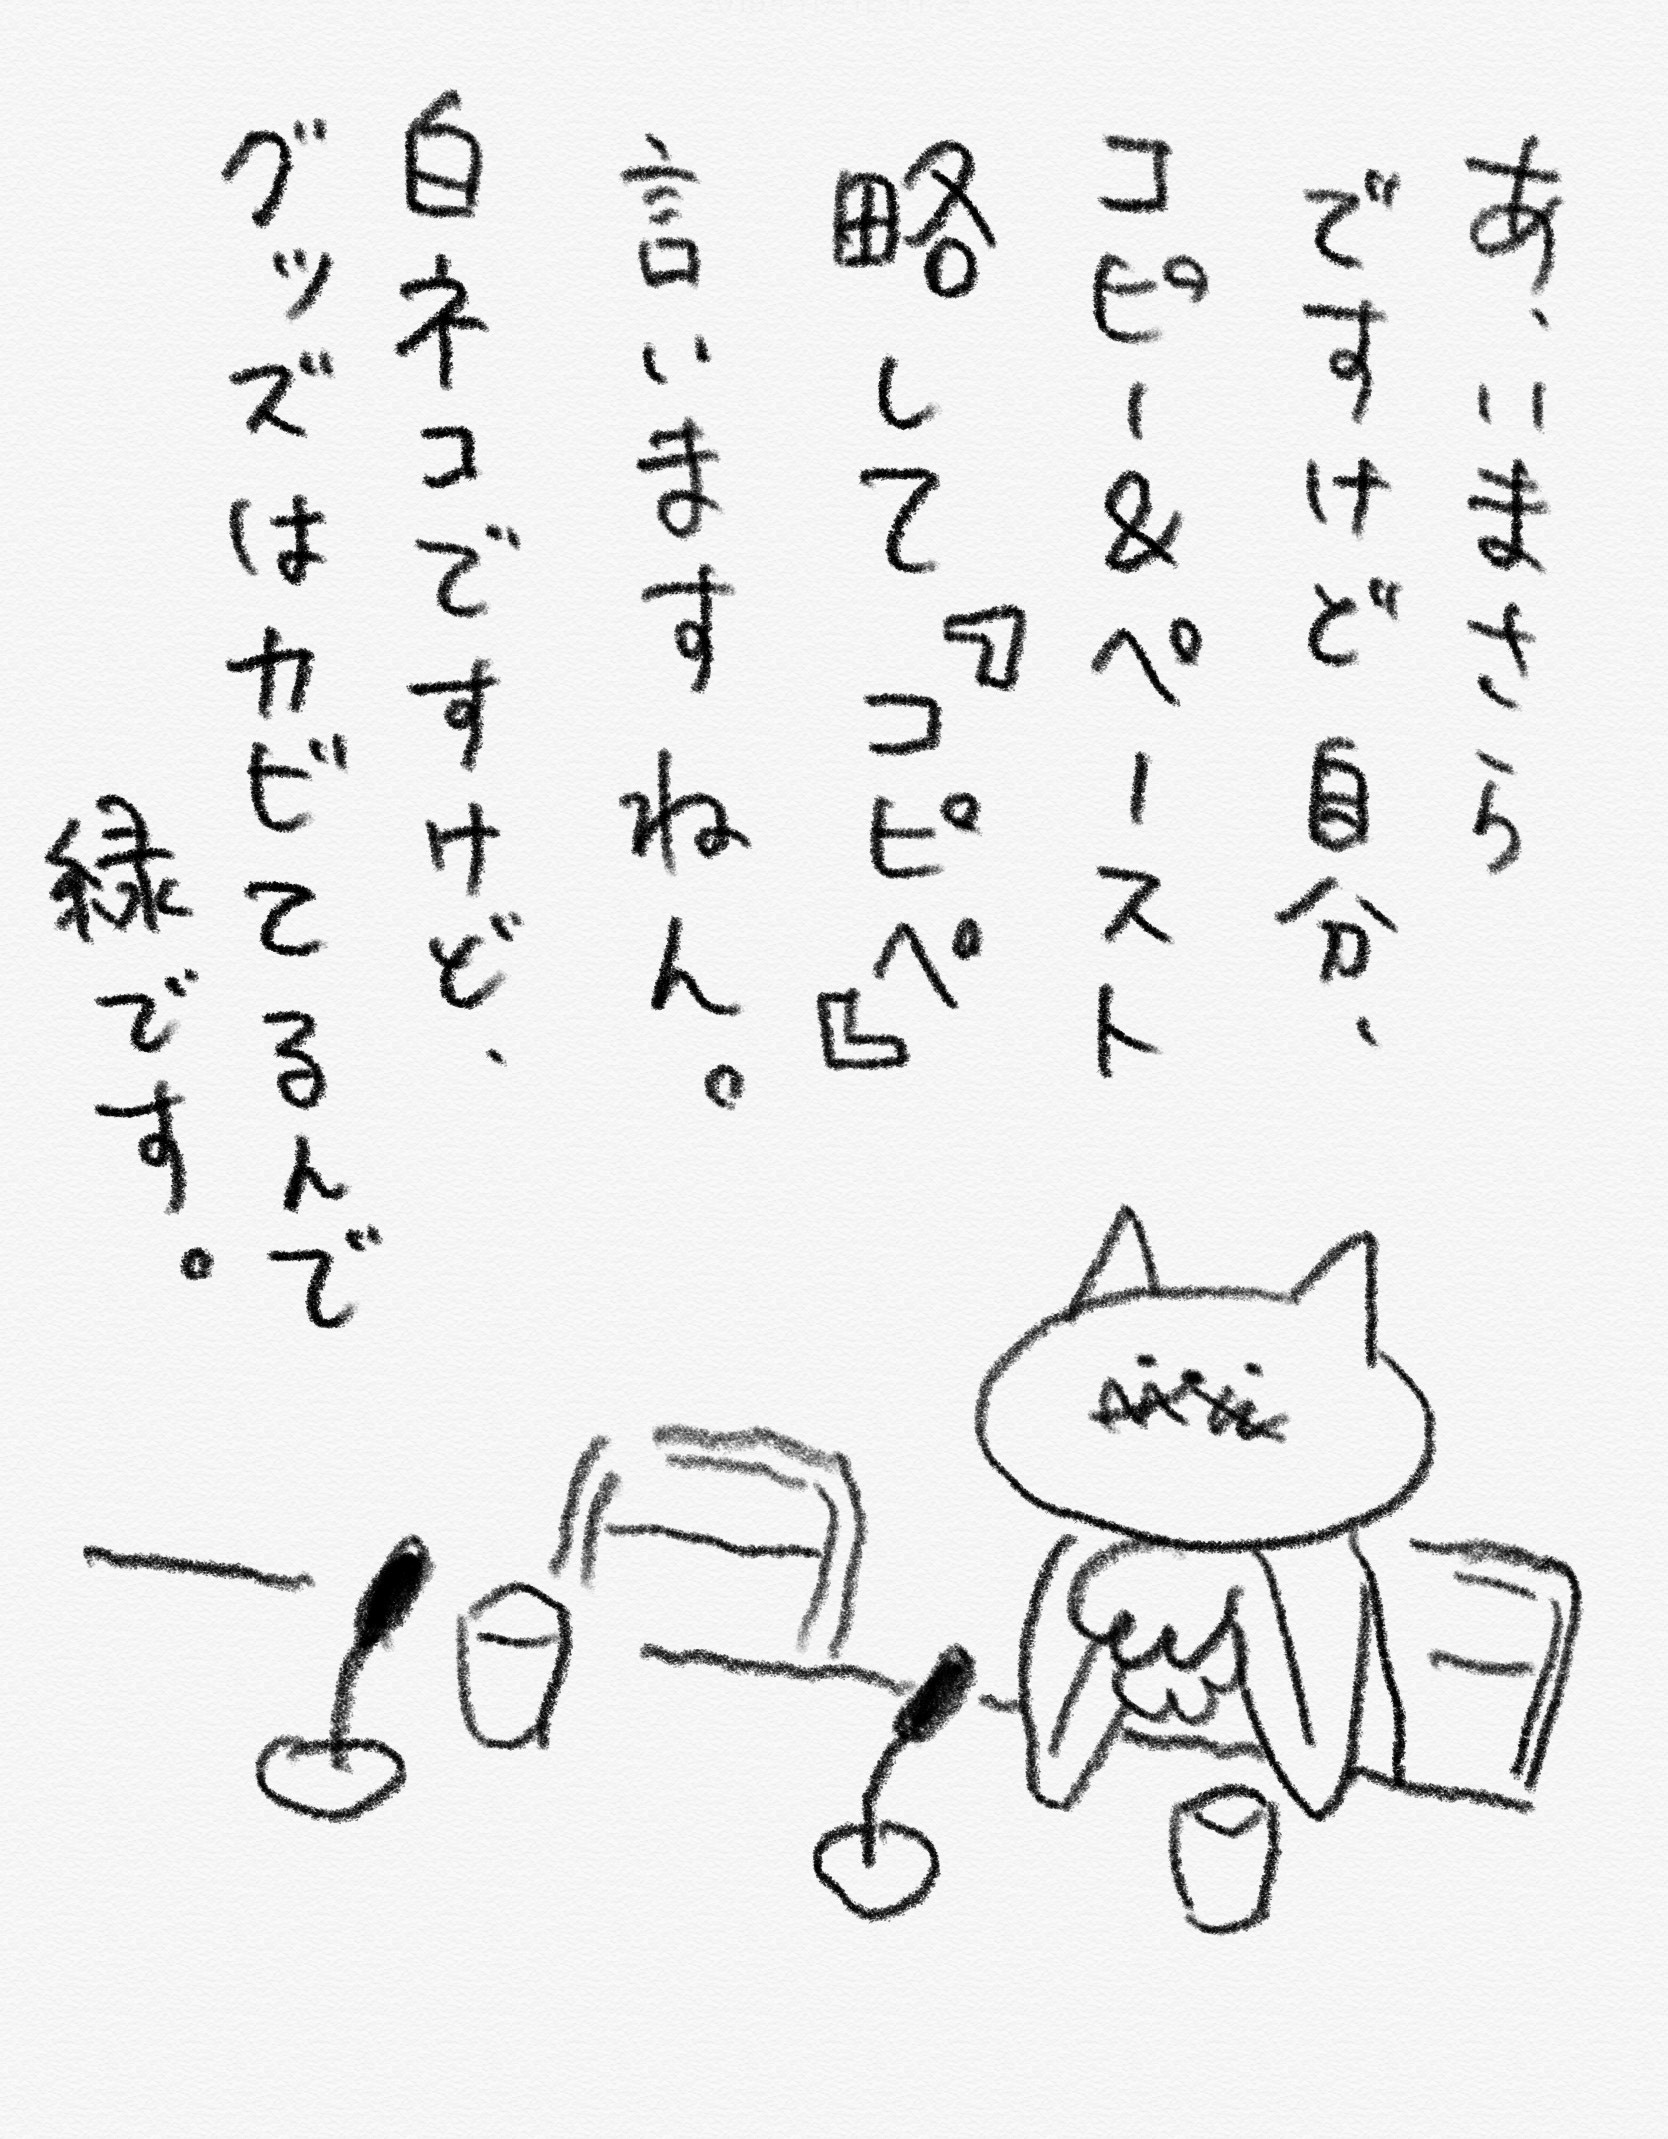 あ、いまさら
ですけど自分、
コピー&ペースト
略して『コピペ』
言いますねん。
白ネコですけど、
グッズはカビてるんで
緑です。